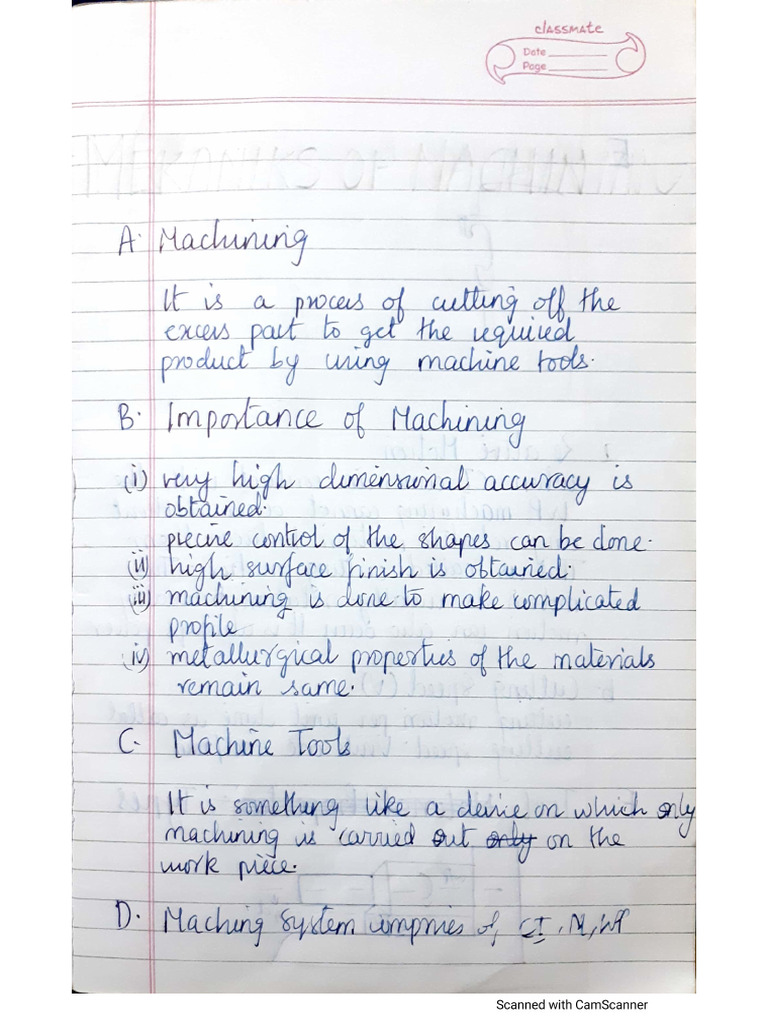 classmate
Date
Page
A. Machining
It is a process of cutting off the
excess part to get the required
product by using machine tools.
B. Importance of Machining
(i) very high dimensional accuracy is
obtained.
precise control of the shapes can be done.
(ii) high surface finish is obtained.
(iii) machining is done to make complicated
profile
(iv) metallurgical properties of the materials
remain same.
C. Machine Tools
It is something like a device on which only
machining is carried out only on the
work piece.
D. Maching System comprises of, CT, M, WP
Scanned with CamScanner